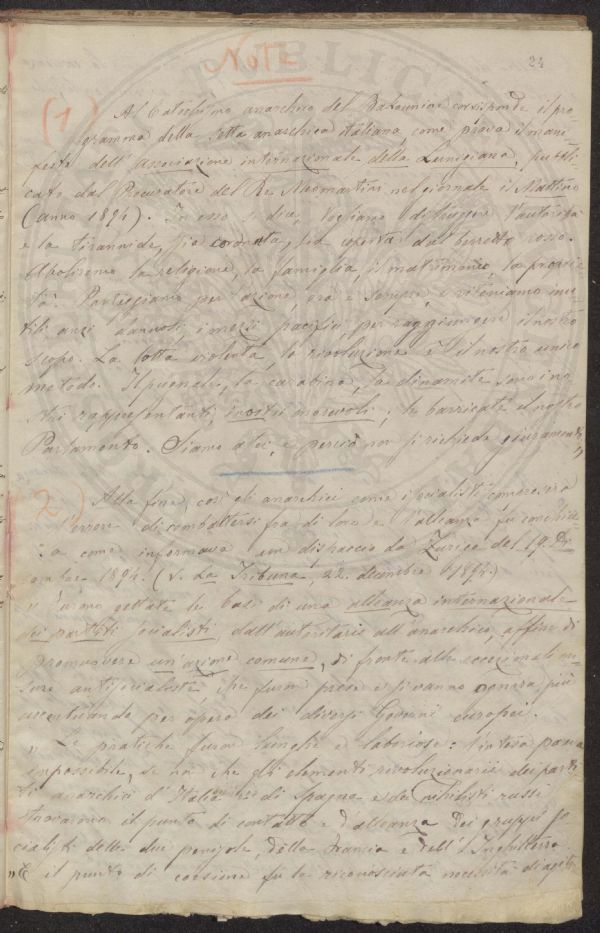 24
Note
(1) Al Catechismo anarchico del Bakounine corrisponde il pro-
gramma della setta anarchica italiana, come prova il mani-
festo dell'Associazione internazionale della Lunigiana, pubbli-
cato dal Procuratore del Re nel giornale il Mattino
(anno 1894). In esso si dice, vogliamo distruggere l'autorità
e la tirannide, sia coronata, sia coperta dal berretto rosso.
Aboliremo la religione, la famiglia, il matrimonio, la proprie-
tà. Parteggiamo per l'azione, ora e sempre, e riteniamo inu-
tili anzi dannosi, i mezzi pacifici, per raggiungere il nostro
scopo. La lotta violenta, la rivoluzione è il nostro unico
metodo. Il pugnale, la carabina, la dinamite sono i no-
stri rappresentanti, i nostri ; le barricate il nostro
Parlamento. Siamo atei, e perciò non si richiede giuramento"
2) Alla fine, così gli anarchici come i socialisti conobbero
l'errore di combattersi fra di loro e l'alleanza fu conchiu-
sa come informava un dispaccio da Zurigo del 19 Di-
cembre 1894. (V. La Tribuna, 22. dicembre 1894.)
" Furono gettate le basi di una alleanza internazionale
dei partiti socialisti, dall'autoritario all'anarchico, affine di
promuovere un'azione comune, di fronte alle eccezionali mi-
sure antisocialiste, che furon prese e si vanno ognora più
accentuando per opera dei diversi Governi europei.
" Le pratiche furon lunghe e laboriose: l'intesa parea
impossibile, se non che gli elementi rivoluzionarii dei parti-
ti anarchici d'Italia e di Spagna e dei nihilisti russi
trovarono il punto di contatto e d'alleanza dei gruppi so-
cialisti delle due penisole, della Francia e dell'Inghilterra.
"E il punto di coesione fu la riconosciuta necessità di